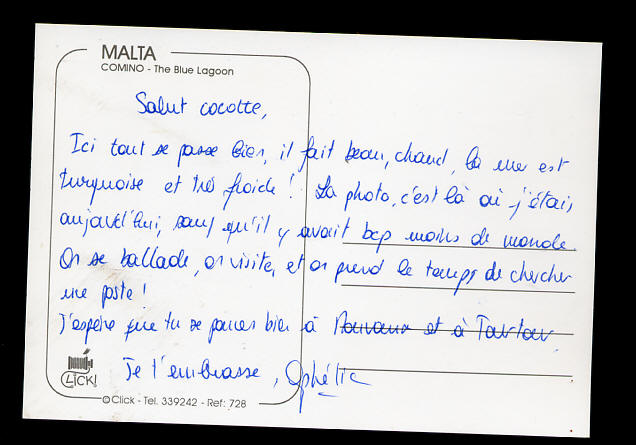 MALTA
COMINO - The Blue Lagoon
Salut cocotte,
Ici tout se passe bien, il fait beau, chaud, la mer est
turquoise et très froide ! La photo, c'est là où j'étais
aujourd'hui, sauf qu'il y avait bcp moins de monde.
On se ballade, on visite, et on prend le temps de chercher
une poste !
J'espère que tu se passes bien à et à
Je t'embrasse, Ophélie
CLICK!
©Click - Tel. 339242 - Ref: 728